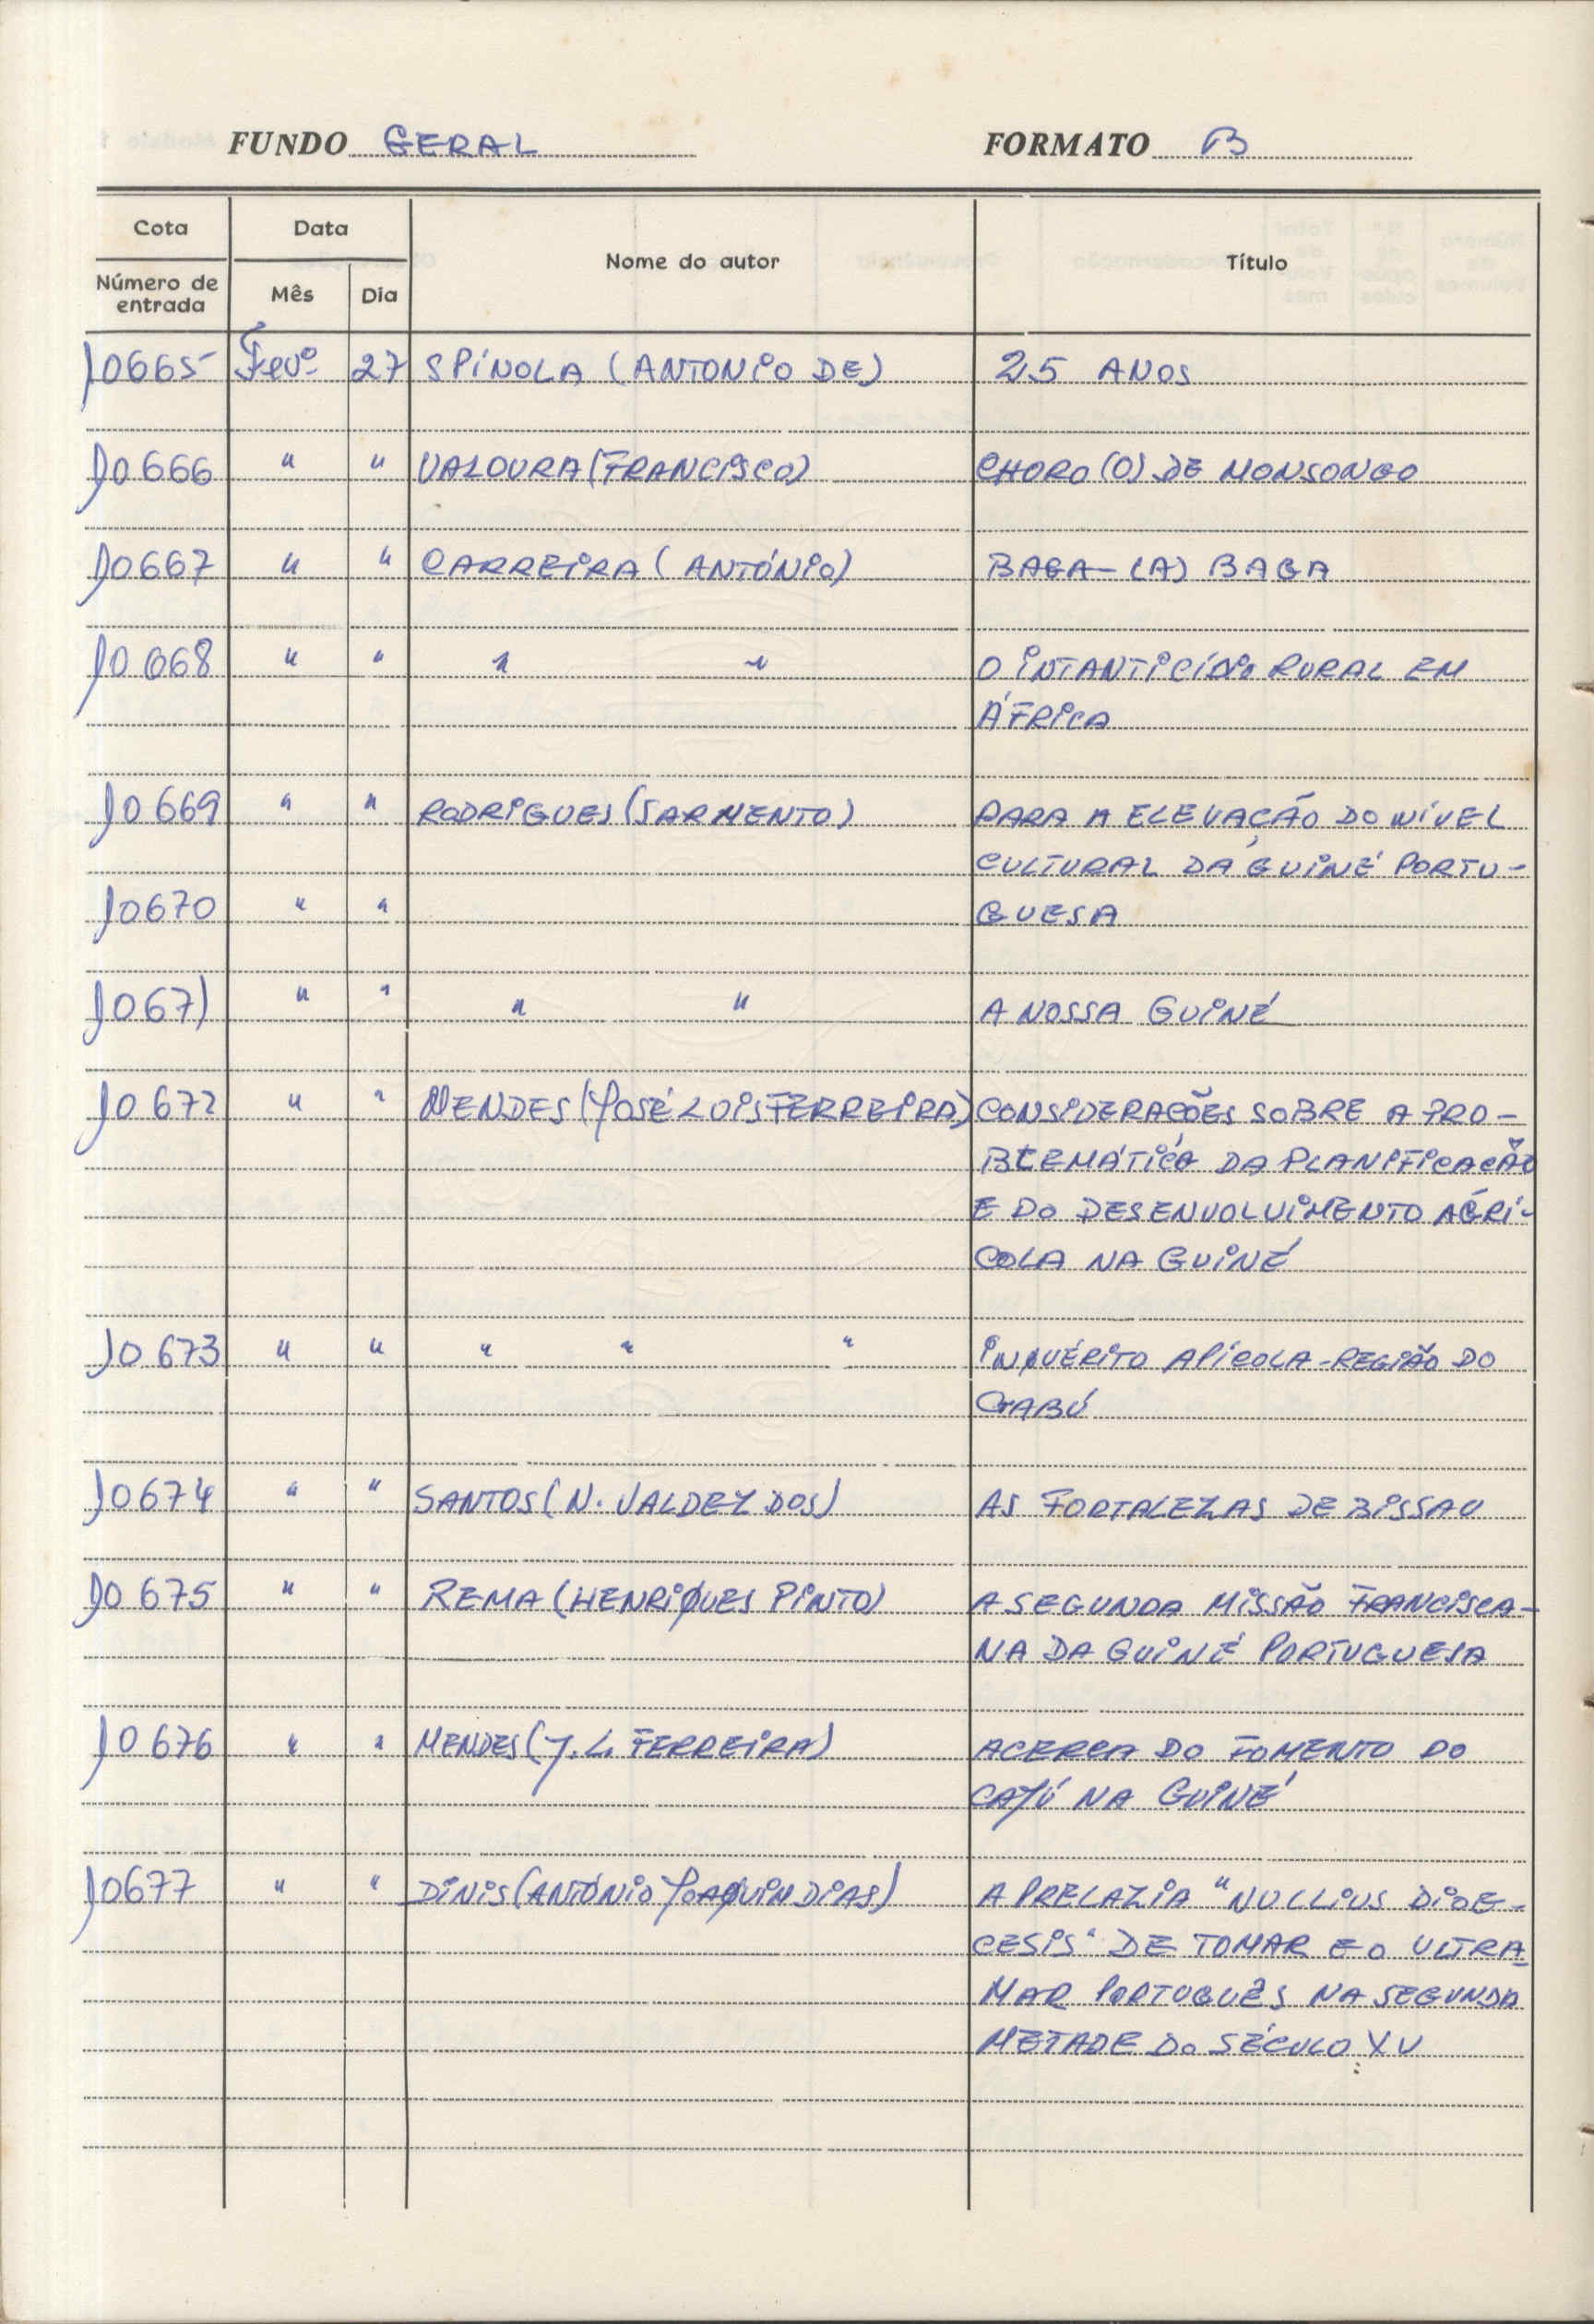 FUNDO GERAL FORMATO B
Cota Data Nome do autor Título
Número de entrada Mês Dia
10665 Fevº 27 SPÍNOLA (ANTONIO DE) 25 ANOS
10666 " " VALOURA (FRANCISCO) CHORO (O) DE MONSONGO
10667 " " CARREIRA (ANTÓNIO) BAGA-(A) BAGA
10668 " " " " O INTANTICÍDIO RURAL EM
ÁFRICA
10669 " " RODRIGUES (SARMENTO) PARA A ELEVAÇÃO DO NÍVEL
CULTURAL DA GUINÉ PORTU-
10670 " " GUESA
10671 " " " " A NOSSA GUINÉ
10672 " " MENDES (JOSÉ LOIS FERREIRA) CONSIDERAÇÕES SOBRE A PRO-
BLEMÁTICA DA PLANIFICAÇÃO
E DO DESENVOLVIMENTO AGRÍ-
COLA NA GUINÉ
10673 " " " " " INQUÉRITO APÍCOLA-REGIÃO DO
GABÚ
10674 " " SANTOS (N. VALDEZ DOS) AS FORTALEZAS DE BISSAU
10675 " " REMA (HENRIQUES PINTO) A SEGUNDA MISSÃO FRANCISCA-
NA DA GUINÉ PORTUGUESA
10676 " " MENDES (J. L. FERREIRA) ACERCA DO FOMENTO DO
CAJÚ NA GUINÉ
10677 " " DINIS (ANTÓNIO JOAQUIN DIAS) A PRELAZIA "NULLIUS DIOE-
CESIS" DE TOMAR E O ULTRA-
MAR PORTUGUÊS NA SEGUNDA
METADE DO SÉCULO XV